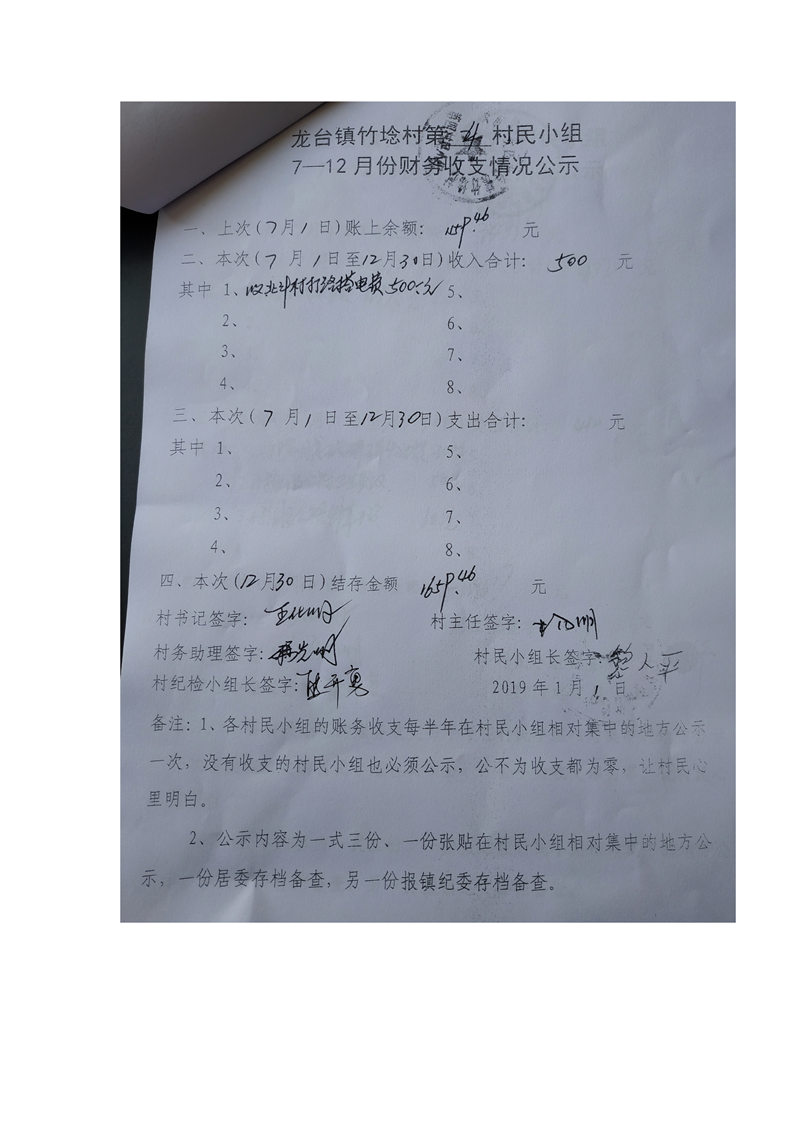 龙台镇竹埝村第 4 村民小组
7—12月份财务收支情况公示
一、上次(7月1日)账上余额: 元
二、本次(7月1日至12月30日)收入合计: 500 元
其中 1、收 村打 搭电费500元 5、
2、 6、
3、 7、
4、 8、
三、本次(7月1日至12月30日)支出合计: 元
其中 1、 5、
2、 6、
3、 7、
4、 8、
四、本次(12月30日)结存金额 1659.46 元
村书记签字: 村主任签字:
村务助理签字: 村民小组长签字:
村纪检小组长签字: 2019年1月1日
备注:1、各村民小组的账务收支每半年在村民小组相对集中的地方公示
一次,没有收支的村民小组也必须公示,公不为收支都为零,让村民心
里明白。
2、公示内容为一式三份、一份张贴在村民小组相对集中的地方公
示,一份居委存档备查,另一份报镇纪委存档备查。